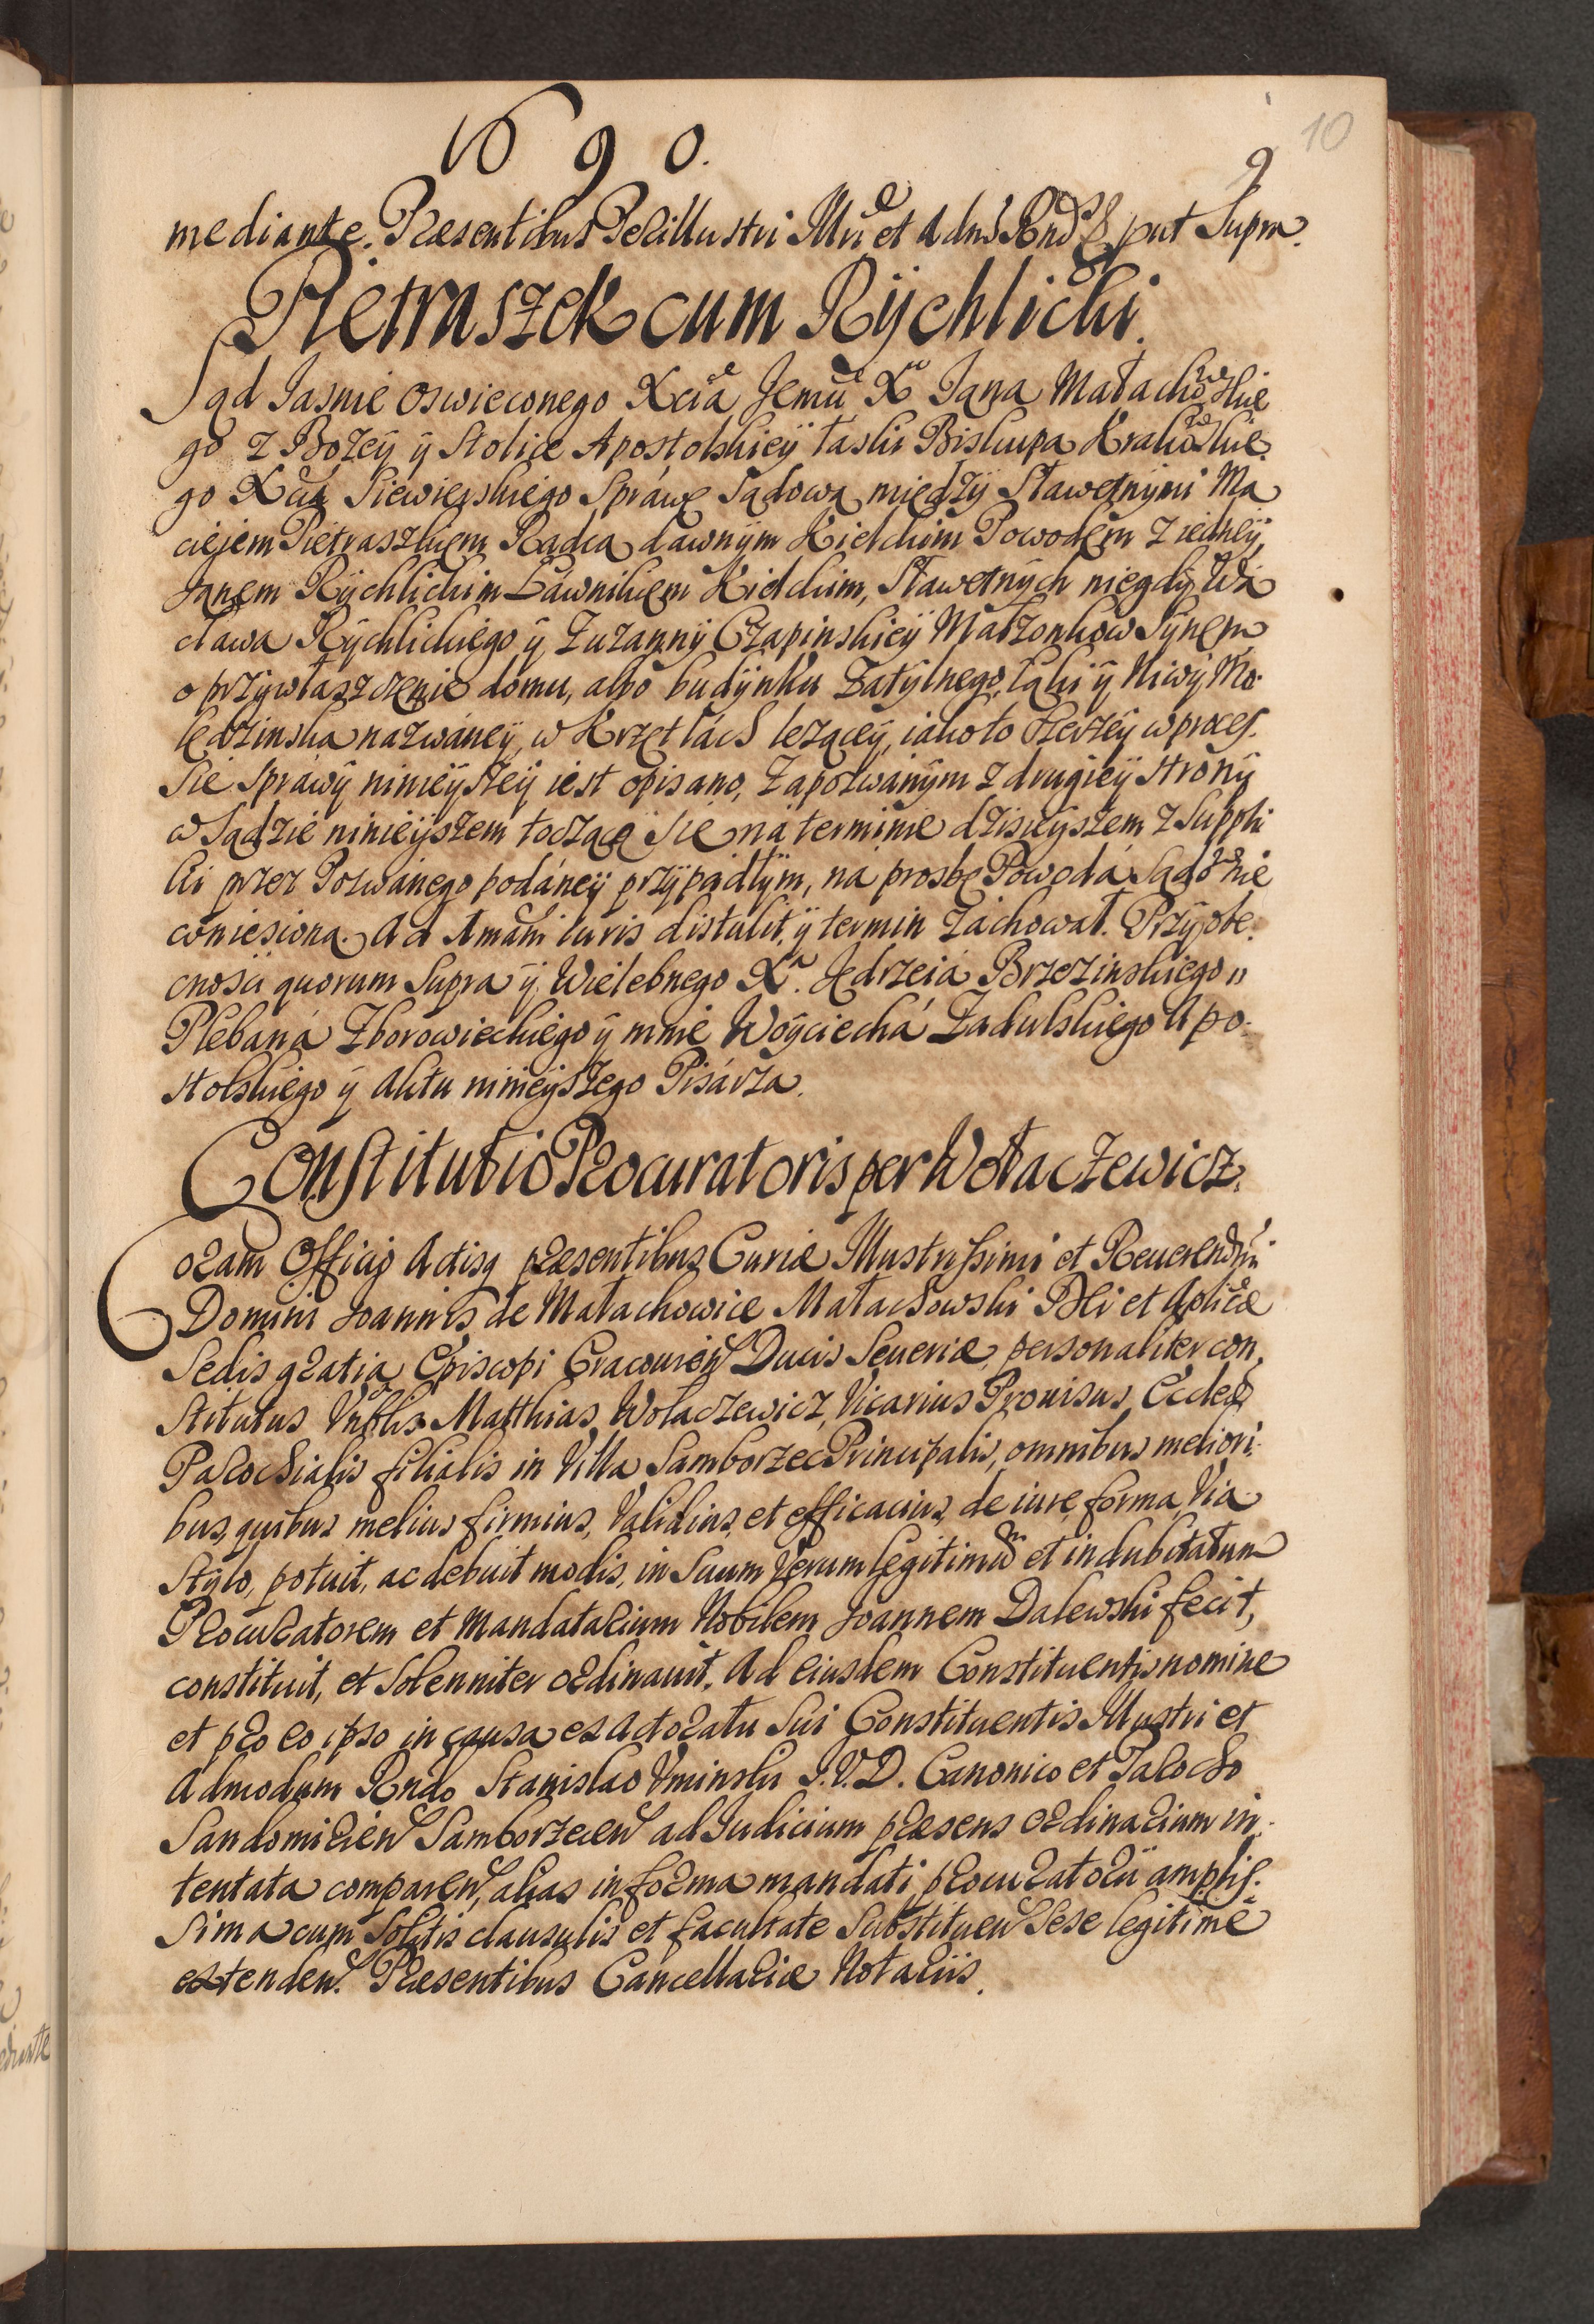 1690.
10
9
mediante. Præsentibus Perillustri Mri et Adms Rnd put Supra.
Pietraszek cum Rÿchlicki.
Sąd Jasnie oswieconego Xcia Jemci Xa Jana Małachowskie
go z Bozeÿ ÿ Stolice Apostolskieÿ łaski Biskupa Krakowskie
go Xcia Siewierskiego Sprawę Sądową międzÿ Sławetnÿmi Ma
ciejem Pietraszkiem Radcą dawnÿm Kielckim Powodem z iedneÿ,
Janem Rÿchlickim Ławnikiem Kielckim, Sławetnÿch niegdÿ Wa
cława Rÿchlickiego ÿ Zuzannÿ Czapinskieÿ Małzonkow Sÿnem
o przÿwłaszczenie domu, albo budÿnku Zatÿlnego, łąki ÿ Niwÿ Mo
ledzinska nazwáneÿ, w Krzetlách leząceÿ, iako to szerzeÿ w proces
sie Spráwÿ ninieÿszeÿ iest opisano, Zapozwánÿm z drugieÿ stronÿ
w Sądzie ninieÿszem toczącą Sie ná terminie dzisieÿszem z Suppli
ki przez Pozwánego podáneÿ przÿpadłÿm, ná prosbę Powodá Sądownie
wniesioną. Ad Amam iuris distulit, ÿ termin Záchował. Przÿ obe
cnosci quorum Supra ÿ Wielebnego Xa. Jędrzeiá Brzezinskiego
Plebaná Zborowieckiego ÿ mnie Woÿciechá Zadulskiego Apo
stolskiego ÿ Aktu ninieÿszego Pisárza.
Constitutio Procuratoris per Wołaczewicz.
Coram Officio Actisq præsentibus Curiæ Illustrissimi et Reuerendmi
Domini Joannis de Małachowice Małachowski Dei et Aplicæ
Sedis gratia Episcopi Cracouien Ducis Seueriæ, personaliter con
stitutus Vnblis Matthias Wołaczewicz, Vicarius Prouisus, Eccleæ
Parochialis filialis in Villa Samborzec Principalis, omnibus meliori
bus, quibus melius firmius, Validius, et efficacius, de iure, forma, Via
Stylo, potuit, ac debuit modis, in Suum Verum legitimum et indubitatum
Procuratorem et Mandatarium Nobilem Joannem Dalewski fecit,
constituit, et Solenniter ordinauit. Ad eiusdem Constituentis nomine
et pro eo ipso in causa ex actoratu Sui Constituentis Illustri et
Admodum Rndo Stanislao Vminski J.V.D. Canonico et Parocho
Sandomirien Samborzecen ad Judicium præsens ordinarium in
tentata comparen, alias in forma mandati procuratorii amplis
sima cum Solitis clausulis et facultate Substituen Sese legitimè
extenden. Præsentibus Cancellariæ Notariis.